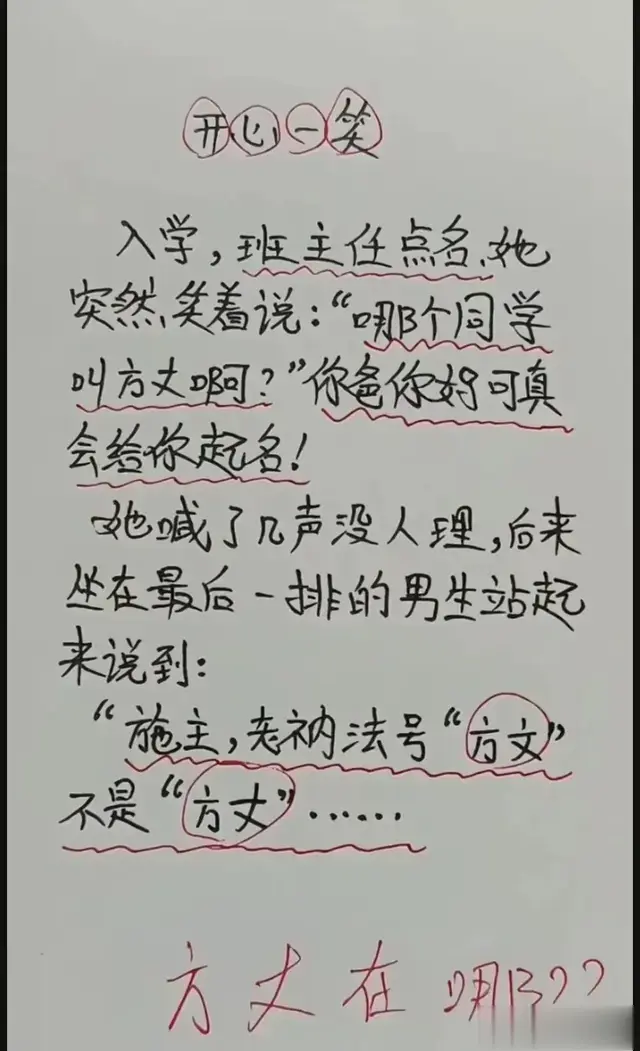 开心一笑
入学，班主任点名、她
突然笑着说：“哪个同学
叫方丈啊？”你爸你妈可真
会给你起名！
她喊了几声没人理，后来
坐在最后一排的男生站起
来说到：
“施主，老衲法号“方文”
不是“方丈”……
方丈在哪？？